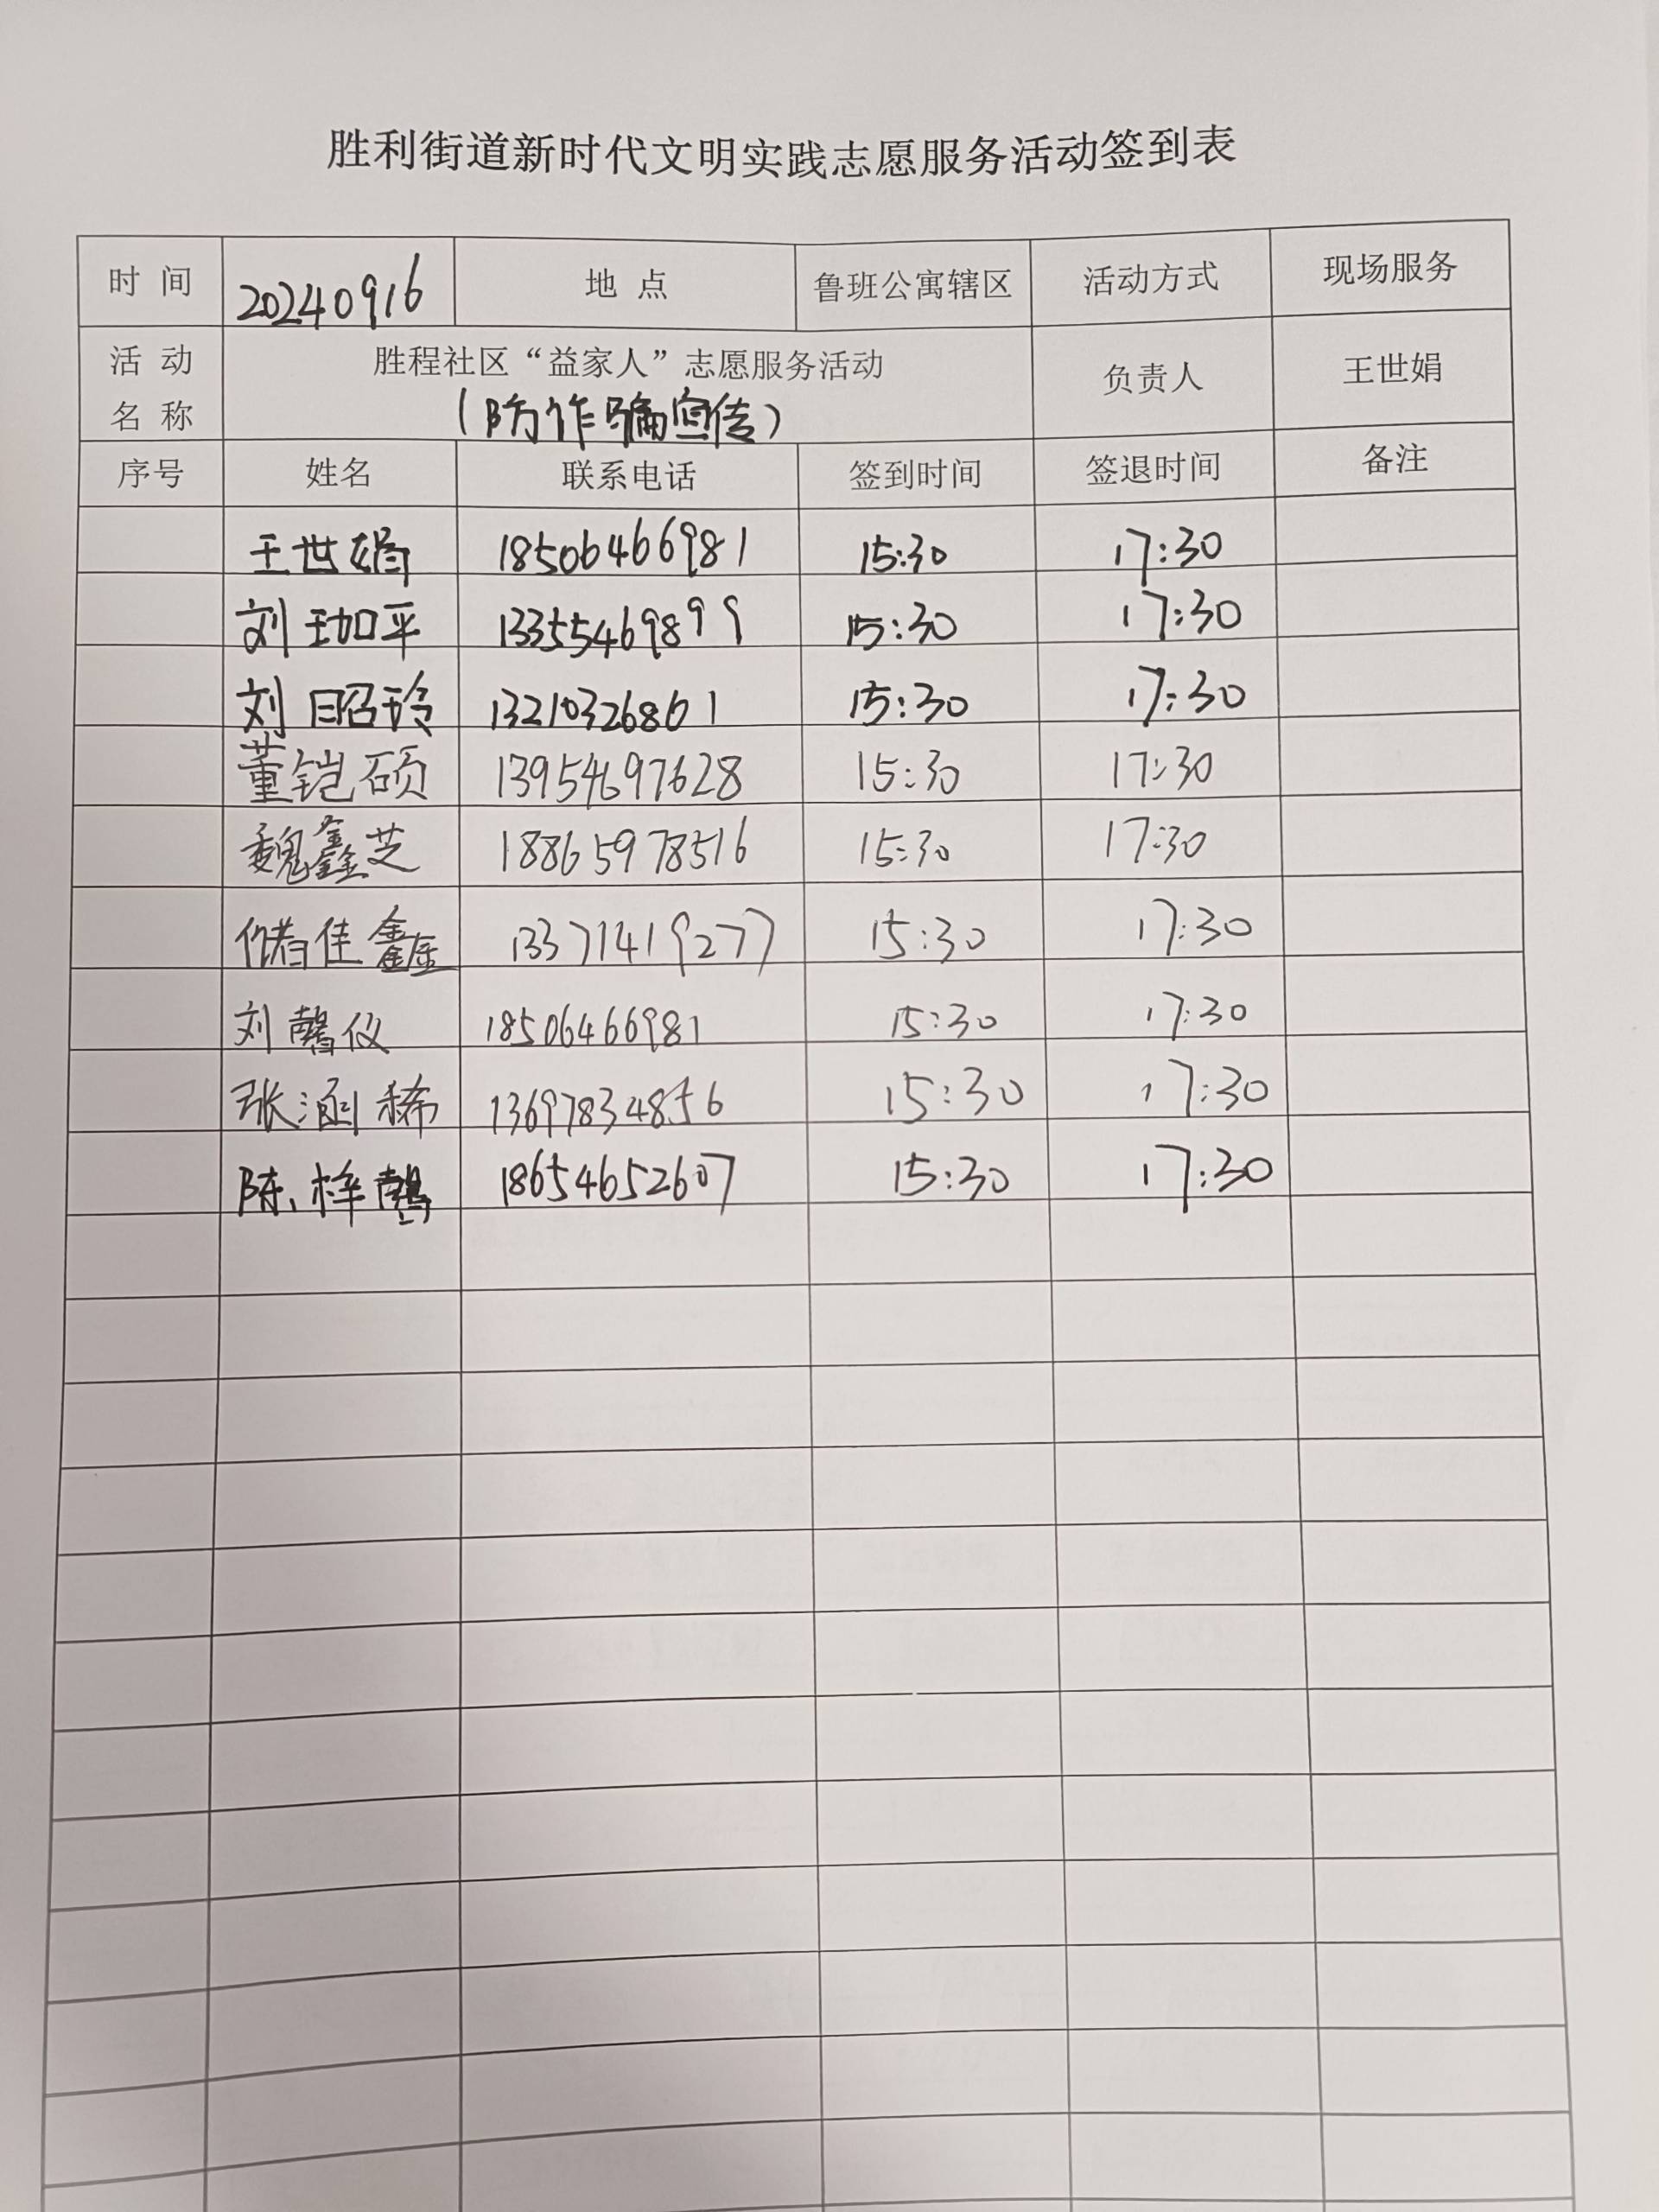 胜利街道新时代文明实践志愿服务活动签到表
时 间 20240916 地 点 鲁班公寓辖区 活动方式 现场服务
活 动 名 称 胜程社区“益家人”志愿服务活动 负责人 王世娟
(防诈骗宣传)
序号 姓名 联系电话 签到时间 签退时间 备注
王世娟 18506466981 15:30 17:30
刘珈平 13355469899 15:30 17:30
刘昭玲 13210326861 15:30 17:30
董铠硕 13954697628 15:30 17:30
魏鑫芝 18865978516 15:30 17:30
储佳鑫 13371419277 15:30 17:30
刘馨仪 18506466981 15:30 17:30
张涵稀 13697834856 15:30 17:30
陈梓馨 18654652607 15:30 17:30